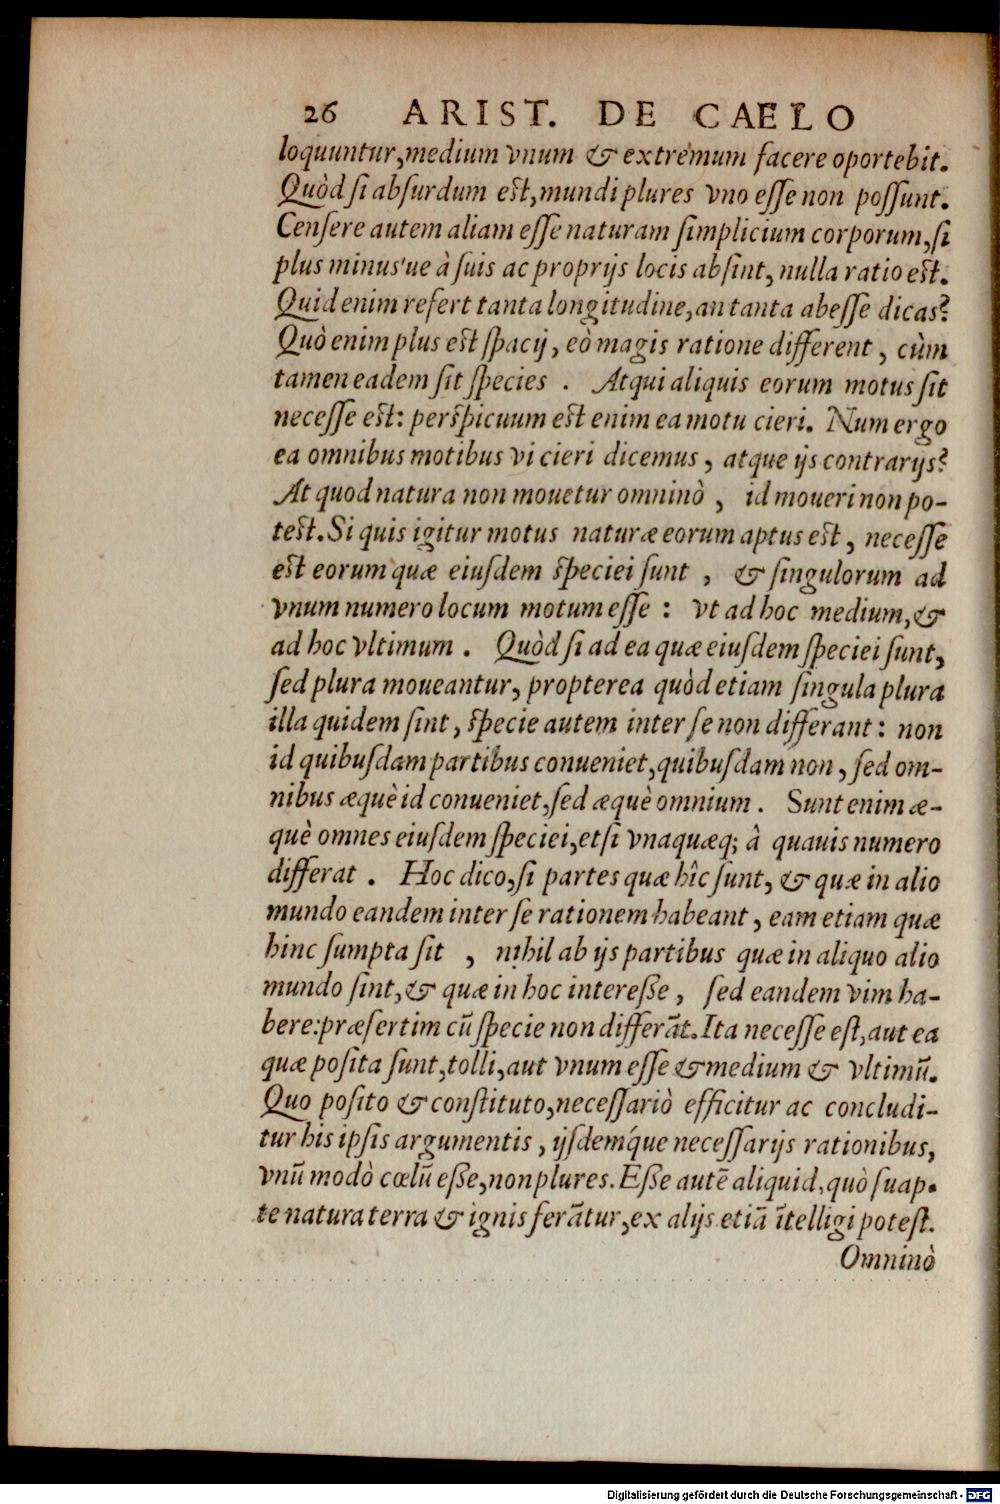 26 ARIST. DE CAELO
loquuntur, medium vnum & extremum facere oportebit.
Quòd ſi abſurdum eſt, mundi plures vno eſſe non poſſunt.
Cenſere autem aliam eſſe naturam ſimplicium corporum, ſi
plus minus'ue à ſuis ac proprijs locis abſint, nulla ratio eſt.
Quid enim refert tanta longitudine, an tanta abeſſe dicas?
Quò enim plus eſt ſpacij, eò magis ratione different, cùm
tamen eadem ſit ſpecies. Atqui aliquis eorum motus ſit
neceſſe eſt: perſpicuum eſt enim ea motu cieri. Num ergo
ea omnibus motibus vi cieri dicemus, atque ijs contrarijs?
At quod natura non mouetur omninò, id moueri non po-
teſt. Si quis igitur motus naturæ eorum aptus eſt, neceſſe
eſt eorum quæ eiuſdem ſpeciei ſunt, & ſingulorum ad
vnum numero locum motum eſſe: vt ad hoc medium, &
ad hoc vltimum. Quòd ſi ad ea quæ eiuſdem ſpeciei ſunt,
ſed plura moueantur, propterea quòd etiam ſingula plura
illa quidem ſint, ſpecie autem inter ſe non differant: non
id quibuſdam partibus conueniet, quibuſdam non, ſed om-
nibus æquè id conueniet, ſed æquè omnium. Sunt enim æ-
què omnes eiuſdem ſpeciei, etſi vnaquæq; â quauis numero
differat. Hoc dico, ſi partes quæ hîc ſunt, & quæ in alio
mundo eandem inter ſe rationem habeant, eam etiam quæ
hinc ſumpta ſit, nihil ab ijs partibus quæ in aliquo alio
mundo ſint, & quæ in hoc intereſſe, ſed eandem vim ha-
bere: præſertim cũ ſpecie non differãt. Ita neceſſe eſt, aut ea
quæ poſita ſunt, tolli, aut vnum eſſe & medium & vltimũ.
Quo poſito & conſtituto, neceſſariò efficitur ac concludi-
tur his ipſis argumentis, ijſdemq́ue neceſſarijs rationibus,
vnũ modò cœlũ eſſe, non plures. Eſſe autẽ aliquid, quò ſuap-
te natura terra & ignis ferãtur, ex alijs etiã ĩtelligi poteſt.
Omninò
Digitalisierung gefördert durch die Deutsche Forschungsgemeinschaft - DFG